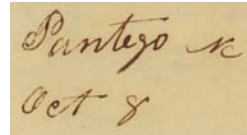 Pantego NC
Oct 8